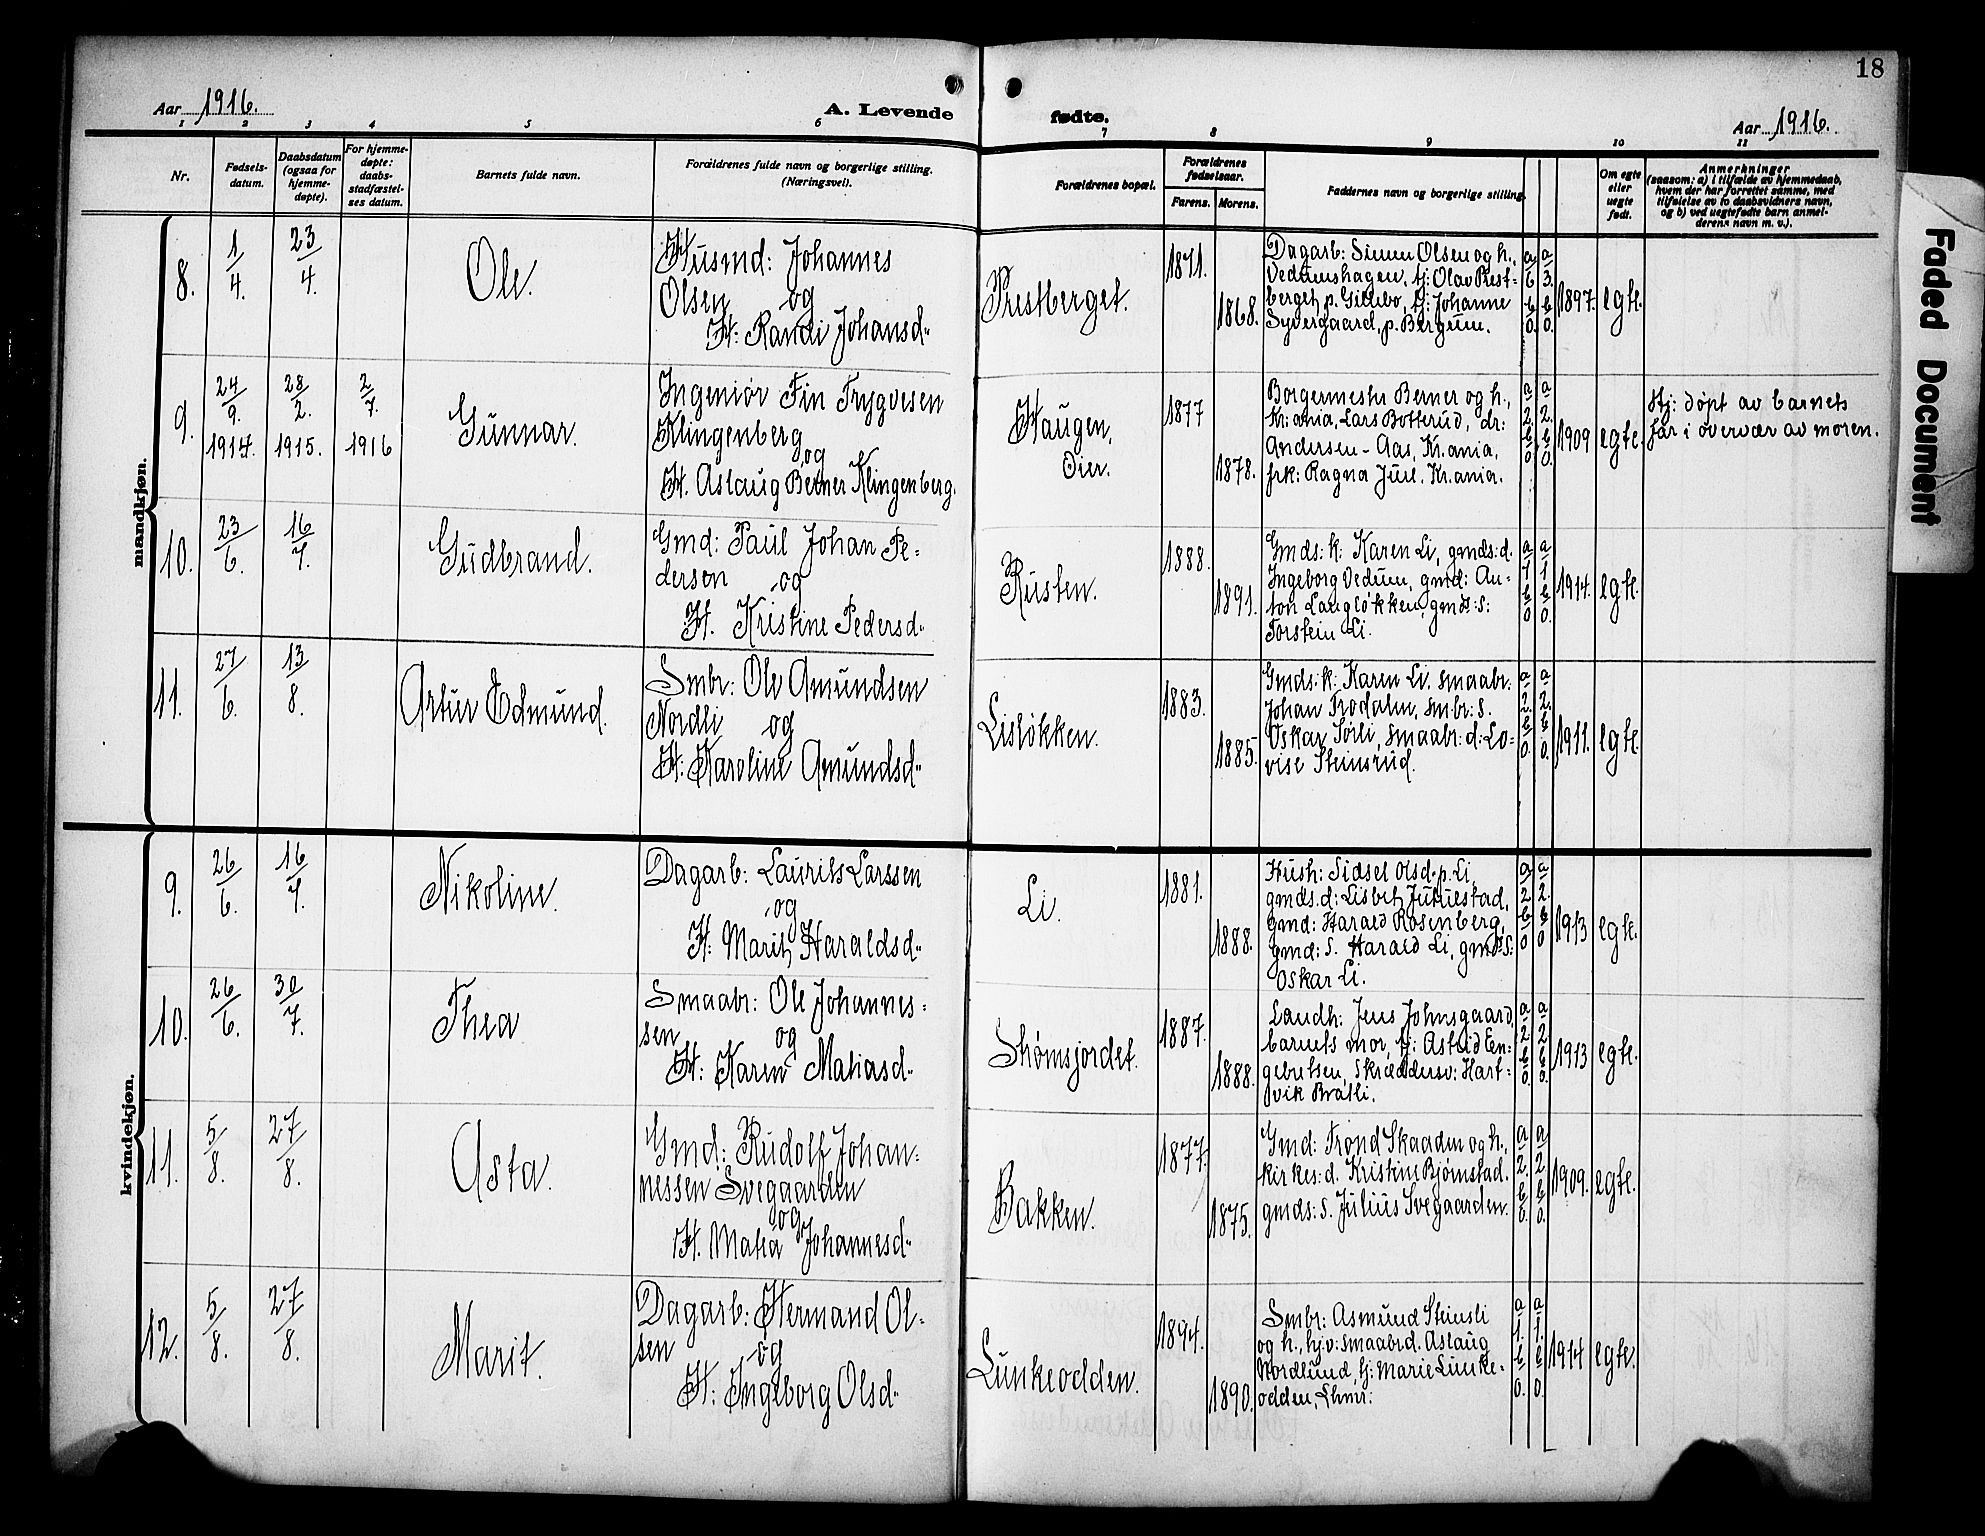 18
Aar 1916.
A. Levende
fødte.
Aar 1916.
1 2 3 4 5 6 7 8 9 10 11
Nr.
Fødsels-
datum.
Daabsdatum
(ogsaa for
hjemme-
døpte).
For hjemme-
døpte:
daabs-
stadfæstel-
ses datum.
Barnets fulde navn.
Forældrenes fulde navn og borgerlige stilling.
(Næringsvei).
Forældrenes bopæl.
Forældrenes
fødselsaar.
Farens. Morens.
Faddernes navn og borgerlige stilling.
Om egte
eller
uegte
født.
Anmerkninger
(saasom: a) i tilfælde av hjemmedaab,
hvem der har forrettet samme, med
tilføielse av to daabsvidners navn,
og b) ved uegtefødte barn anmel-
derens navn m. v.).
Faded Document
mandkjøn.
8.
1/4.
23/4.
Ole.
Husmd: Johannes
Olsen og
H: Randi Johansd.
Prestberget.
1871.
1868.
Dagarb: Simen Olsen og h.,
Vedumshagen, tj: Olav Prest-
berget, p. Gillebo, tj: Johanne
Syvergaard, p. Bergum.
a 6 b 0.
a 3. b 0.
1897.
egte.
9.
24/9. 1914.
28/2. 1915.
2/7. 1916
Gunnar.
Ingeniør Fin Trygvesen
Klingenberg
og
H. Aslaug Berner Klingenberg.
Haugen,
Oier.
1877
1878.
Borgermester Berner og h.,
Kr.ania, Lars Botterud, dr:
Andersen-Aas, Kr.ania,
frk: Ragna Juul, Kr.ania.
a 2. b 0
a 2. b 0.
1909
egte.
Hj: døpt av barnets
far i overvær av moren.
10.
23/6.
16/7.
Gudbrand.
Gmd: Paul Johan Pe-
dersen og
H. Kristine Pedersd.
Rusten.
1888.
1891.
Gmds: k: Karen Li, gmds: d.
Ingeborg Vedum, gmd: An-
ton Langløkken, gmds: s:
Torstein Li.
a 1 b 0
a 1 b 0.
1914.
egte.
11.
27/6.
13/8.
Artur Edmund.
Smbr: Ole Amundsen
Nordli og
H: Karoline Amundsd.
Lisløkken.
1883.
1885.
Gmds: k: Karen Li, smaabr:
Johan Trodalen, smbr: s.
Oskar Sørli, smaabr: d: Lo-
vise Steinsrud.
a 2. b 0.
a 2. b 0.
1911.
egte.
kvindekjøn.
9.
26/6.
16/7.
Nikoline.
Dagarb: Laurits Larssen
og
H: Marit Haraldsd.
Li.
1881.
1888.
Hush: Sidsel Olsd. p. Li,
gmds. d: Lisbet
gmd: Harald Rosenberg,
gmd: s. Harald Li, gmds: s:
Oskar Li.
a 2 b 0
a 2. b 0
1913
egte.
10.
26/6.
30/7.
Thea
Smaabr: Ole Johannes-
sen og
H: Karen Matiasd.
1887.
1888.
Landh: Jens Johnsgaard,
barnets mor, tj: Astrid En-
gebretsen, Skræddersv: Hart-
vik Bratli.
a 2 b 0.
a 2 b 0.
1913
egte.
11.
5/8.
27/8.
Asta.
Gmd: Rudolf Johan-
nessen Svegaarden
og
H. Matea Johannesd.
Bakken.
1877.
1875.
Gmd: Trond Skaaden og h.,
kirkes: d. Kristine Bjørnstad.
gmds: s. Julius Svegaarden.
a 2. b 0.
a 2 b 0.
1909.
egte.
12.
5/8.
27/8.
Marit.
Dagarb: Hermand Ol-
sen og
H: Ingeborg Olsd.
Lunkeodden.
1894.
1890.
Smbr: Asmund Steinsli
og h., hj.v: smaabrd. Aslaug
Nordlund, tj: Marie Lunke-
odden,
a 1. b 0.
a 1. b 0.
1914
egte.